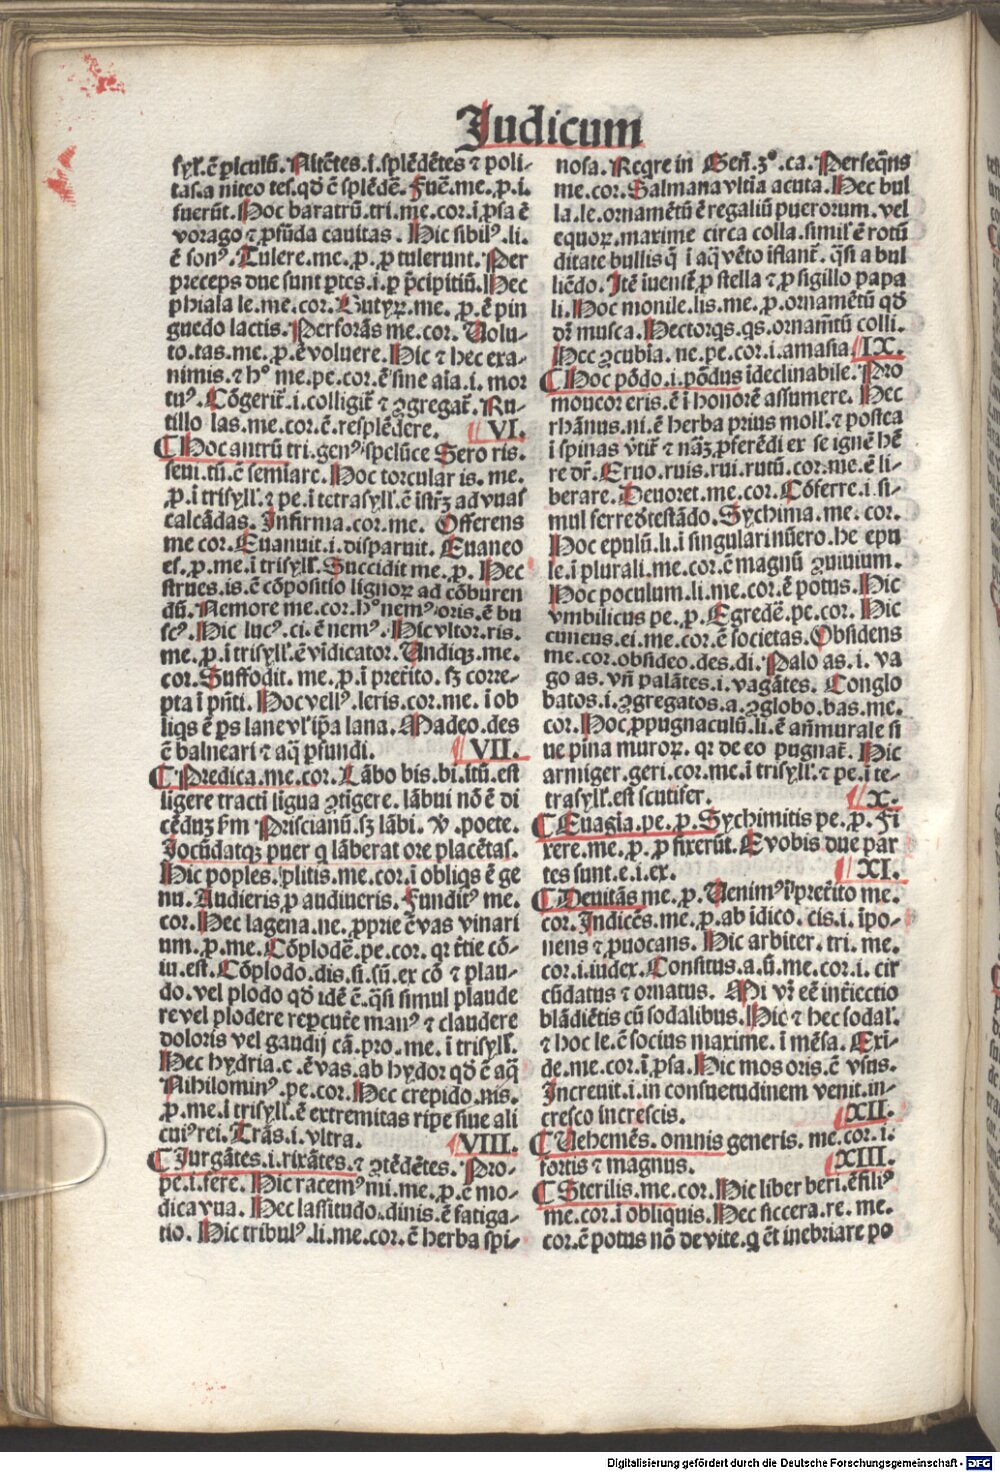 Judicum
syl'. ē piculū. Nitētes .i. splēdētes ⁊ poli-
tas. a niteo tes. qd̄ ē splēdē. Fuē. me. p. i.
fuerūt. Hoc baratrū. tri. me. cor. i ꝓsa ē
vorago ⁊ ꝓfūda cauitas. Hic sibilꝰ. li.
ē sonꝰ. Tulere. me. p. ꝑ tulerunt. Per
preceps due sunt ptes. i. ꝑ p̄cipitiū. Hec
phiala le. me. cor. Butyꝝ. me. p. ē pin
guedo lactis. Perforās me. cor. Uolu-
to. tas. me. p. ē voluere. Hic ⁊ hec exa-
nimis. ⁊ hº me. pe. cor. ē sine aīa .i. mor
tuꝰ. Cōgerit̄. i. colligit̄ ⁊ ꝯgregat̄. Ru-
tillo las. me. cor. ē. resplēdere. VI.
Hoc antrū tri. genꝰ spelūce Sero ris.
seui. tū. ē semiare. Hoc torcular is. me.
p. i trisyll'. ⁊ pe. i tetrasyll'. ē istr̄ȝ ad vuas
calcādas. Infirma. cor. me. Offerens
me cor. Euanuit. i. disparuit. Euaneo
es. p. me. i trisyll'. Succidit me. p. Hec
strues. is. ē cōpositio lignoꝝ ad cōburen
dū. Nemore me. cor. hº nemꝰ. oris. ē bu
scꝰ. Hic lucꝰ. ci. ē nemꝰ. Hic vltor. ris.
me. p. i trisyll'. ē vīdicator. Undiqȝ. me.
cor. Suffodit. me. p. i pret̄ito. sȝ corre-
pta i pn̄ti. Hoc vellꝰ. leris. cor. me. i ob
liqs ē ps lane vl' ip̄a lana. Madeo. des
ē balneari ⁊ aq̄ ꝑfundi. VII.
Predica. me. cor. Lābo bis. bi. itū. est
ligere tracti ligua ꝯtigere. lābui nō ē di
cēduȝ ẜm Priscianū. sȝ lābi. V̄. poete.
Iocūdatqȝ puer q lāberat ore placētas.
Hic poples. plitis. me. cor. i obliqs ē ge
nu. Audieris ꝓ audiueris. Funditꝰ me.
cor. Hec lagena. ne. ꝓprie ē vas vinari
um. p. me. Cōplodē. pe. cor. qꝛ t̄tie cō-
iu. est. Cōplodo. dis. si. sū. ex cō ⁊ plau-
do. vel plodo qd̄ idē ē. q̄si simul plaude
re vel plodere repcut̄e manꝰ ⁊ claudere
doloris vel gaudij cā. pro. me. i trisyll'.
Hec hydria. e. ē vas. ab hydor qd̄ ē aq̄
Nihilominꝰ. pe. cor. Hec crepido. nis.
p. me. i trisyll'. ē extremitas ripe siue ali
cuiꝰ rei. Trās. i. vltra. VIII.
Iurgātes. i. rixātes. ⁊ ꝯtēdētes. Pro-
pe. i. fere. Hic racemꝰ mi. me. p. ē mo-
dica vua. Hec lassitudo. dinis. ē fatiga-
tio. Hic tribulꝰ. li. me. cor. ē herba spi-
nosa. Reqre in Gen̄. 3º. ca. Perseqn̄s
me. cor. Salmana vltia acuta. Hec bul
la. le. ornamētū ē regaliū puerorum. vel
equoꝝ. maxime circa colla. simil' ē rotū
ditate bullis q̄ i aq̄ vēto iflant̄. q̄si a bul
liēdo. Itē iuenit̄ ꝓ stella ⁊ ꝓ sigillo papa
li. Hoc monile. lis. me. p. ornamētū qd̄
dr̄ musca. Hec torqs. qs. ornam̄tū colli.
Hec ꝯcubia. ne. pe. cor. i. amasia. IX.
Hoc pōdo. i. pōdus ideclinabile. Pro
moueor eris. ē i honorē assumere. Hec
rhānus. ni. ē herba prius moll'. ⁊ postea
i spinas v̄tit̄ ⁊ nāȝ ꝓferēdi ex se ignē hē
re dr̄. Eruo. ruis. rui. rutū. cor. me. ē li-
berare. Deuoret. me. cor. Cōferre. i. si-
mul ferre ꝺtestādo. Sychima. me. cor.
Hoc epulū. li. i singulari nūero. he epu
le. i plurali. me. cor. ē magnū ꝯuiuium.
Hoc poculum. li. me. cor. ē potus. Hic
vmbilicus pe. p. Egredē. pe. cor. Hic
cuneus. ei. me. cor. ē societas. Obsidens
me. cor. obsideo. des. di. Palo as. i. va
go as. vn̄ palātes. i. vagātes. Conglo
batos. i. ꝯgregatos. a ꝯglobo. bas. me.
cor. Hoc ꝓpugnaculū. li. ē an̄murale si
ue pina muroꝝ. qꝛ de eo pugnat̄. Hic
armiger. geri. cor. me. i trisyll'. ⁊ pe. i te-
trasyll'. est scutifer. X.
Euagia. pe. p. Sychimitis pe. p. Fi
xere. me. p. ꝑ fixerūt. E vobis due par
tes sunt. e. i. ex. XI.
Deuitās me. p. Uenimꝰ i pret̄ito me.
cor. Indicēs. me. p. ab idico. cis. i. ipo-
nens ⁊ ꝓuocans. Hic arbiter. tri. me.
cor. i. iudex. Consitus. a. ū. me. cor. i. cir
cūdatus ⁊ ornatus. Mi vr̄ eē int̄iectio
blādiētis cū sodalibus. Hic ⁊ hec sodal'.
⁊ hoc le. ē socius maxime. i mēsa. Exi-
de. me. cor. i ꝓsa. Hic mos oris. ē vsus.
Increuit. i. in consuetudinem venit. in-
cresco increscis. XII.
Uehemēs. omnis generis. me. cor. i.
fortis ⁊ magnus. XIII.
Sterilis. me. cor. Hic liber beri. ē filiꝰ
me. cor. i obliquis. Hec siccera. re. me.
cor. ē potus nō de vite. q ēt inebriare po
Digitalisierung gefördert durch die Deutsche Forschungsgemeinschaft - DFG